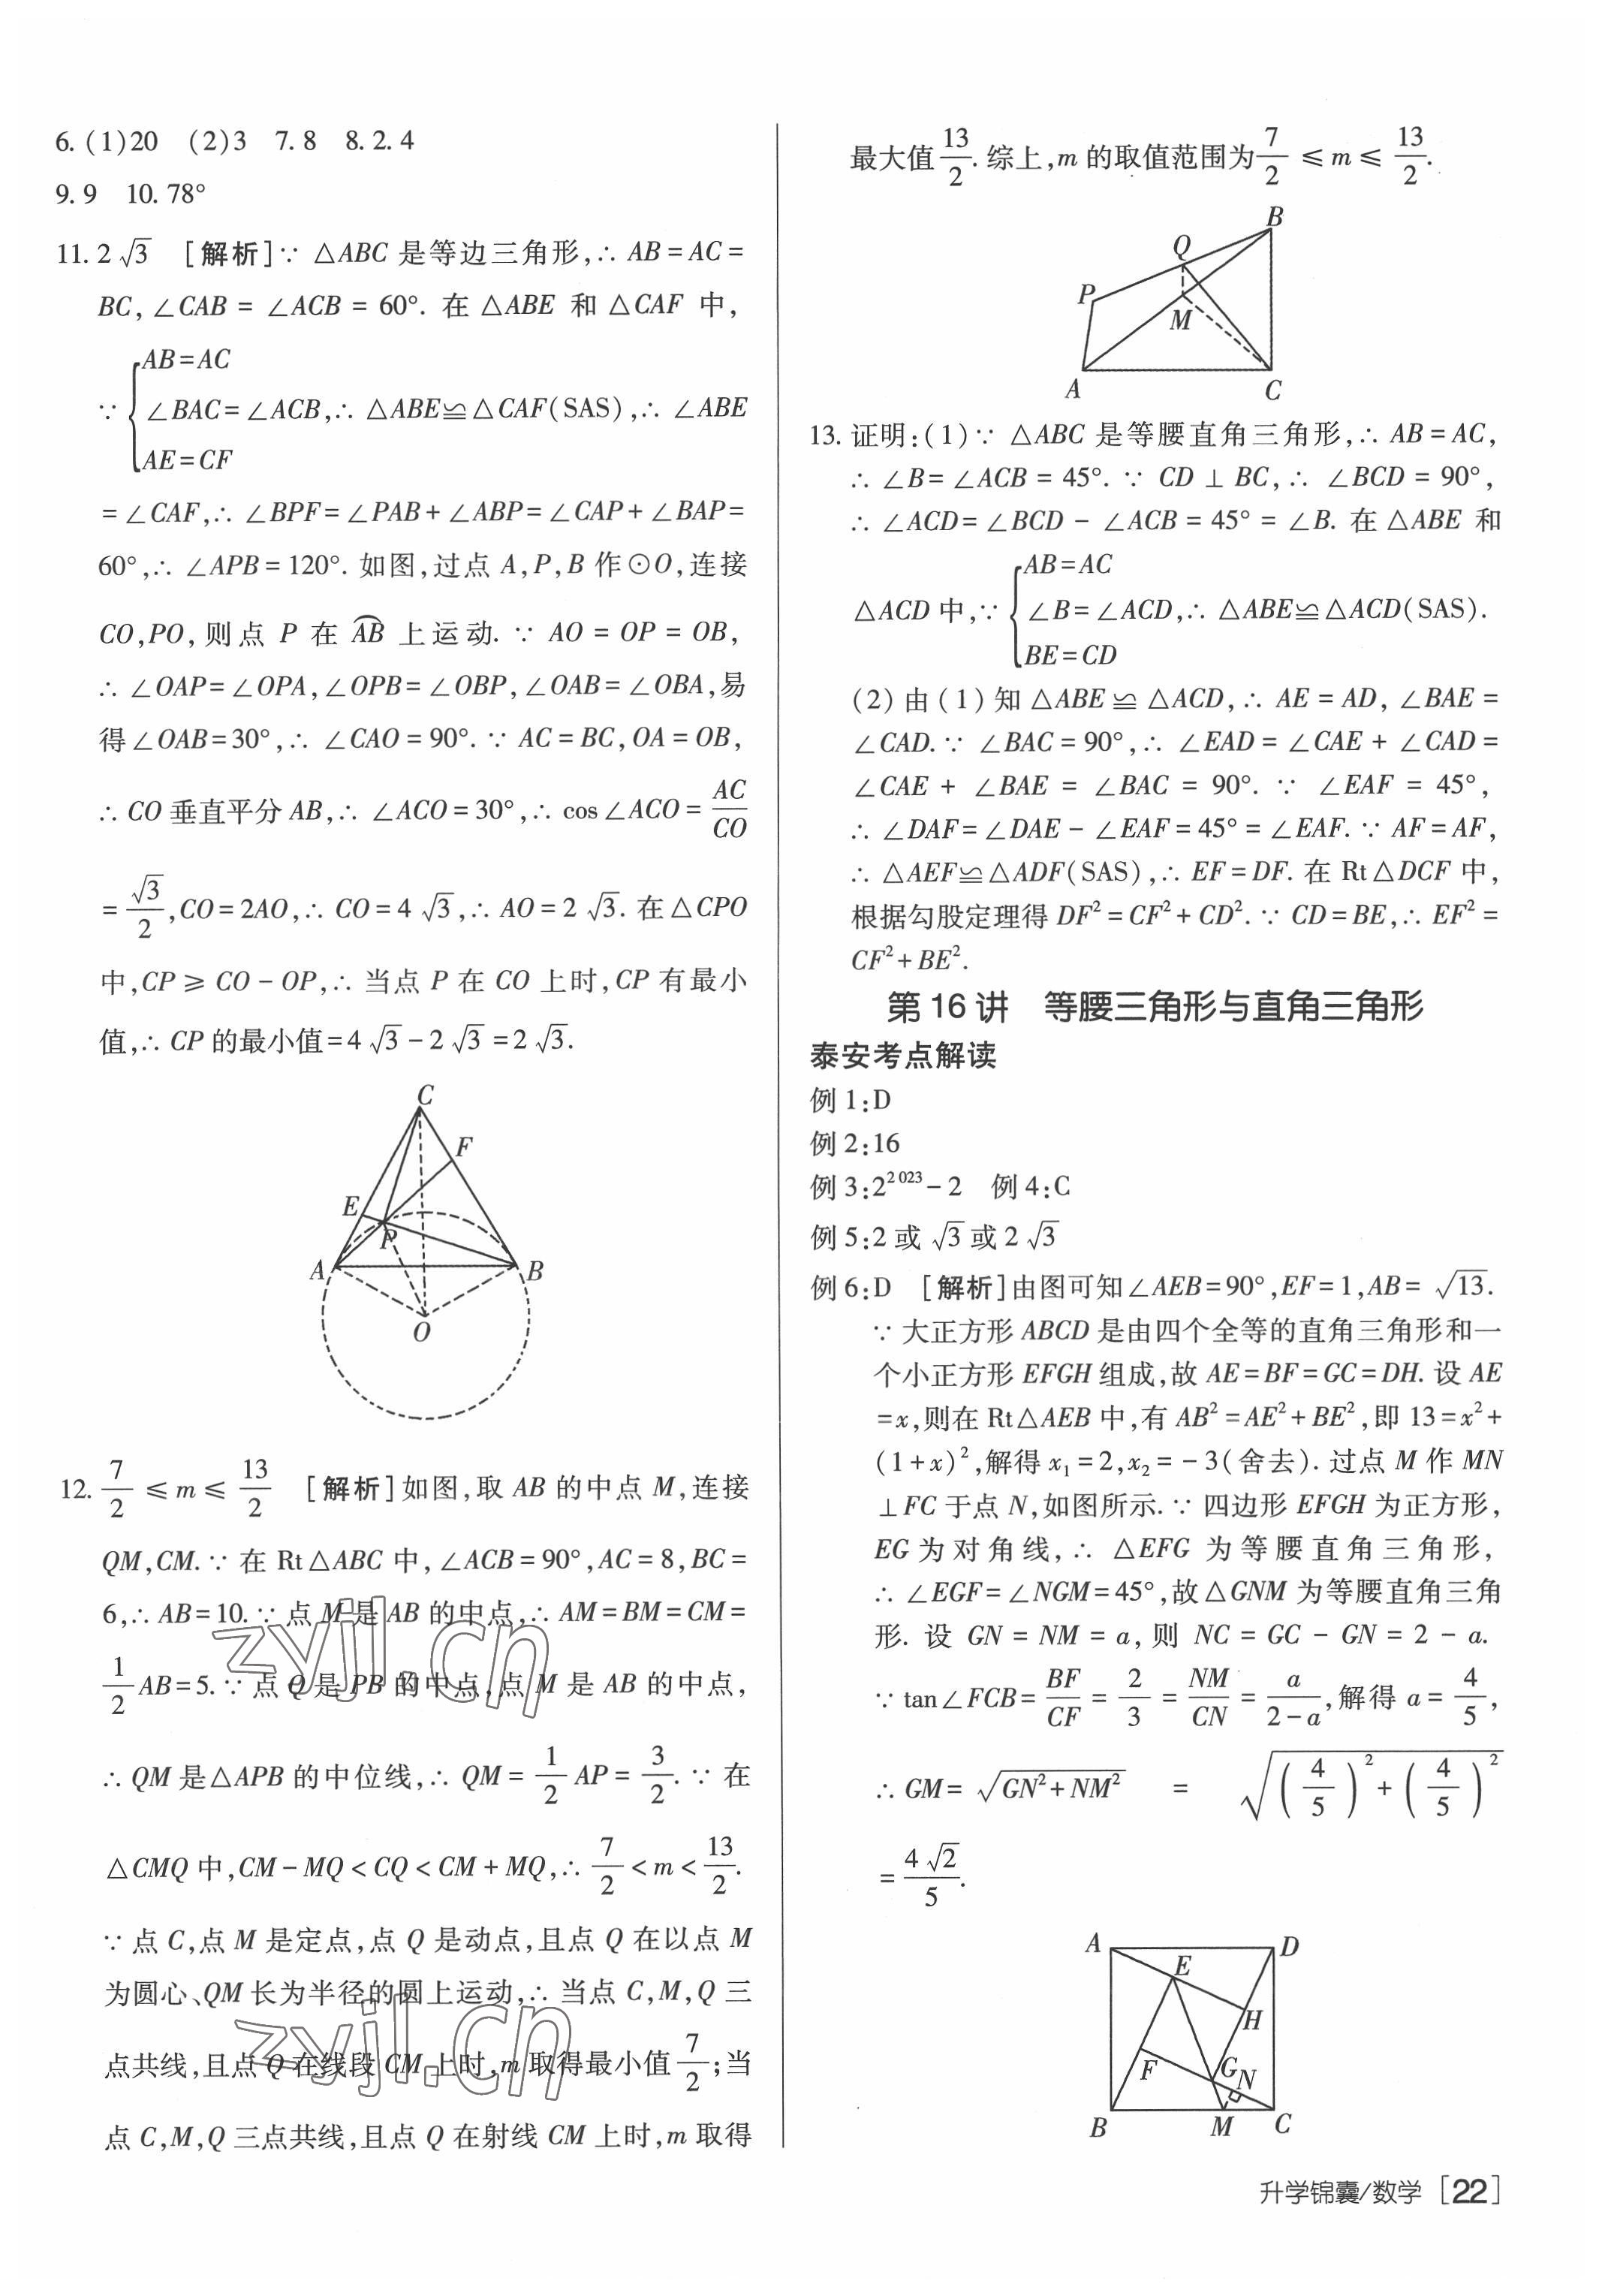 6. (1)20　(2)3　7. 8　8. 2. 4
9. 9　10. 78°
11. 2√3　[解析]∵ △ABC 是等边三角形,∴ AB = AC =
BC, ∠CAB = ∠ACB = 60°. 在 △ABE 和 △CAF 中,
AB = AC
∵ { ∠BAC = ∠ACB,∴ △ABE≌△CAF(SAS),∴ ∠ABE
AE = CF
= ∠CAF,∴ ∠BPF = ∠PAB + ∠ABP = ∠CAP + ∠BAP =
60°,∴ ∠APB = 120°. 如图,过点 A,P,B 作⊙O,连接
CO,PO, 则点 P 在 \overset{⌒}{AB} 上运动. ∵ AO = OP = OB,
∴ ∠OAP = ∠OPA,∠OPB = ∠OBP,∠OAB = ∠OBA,易
得∠OAB = 30°,∴ ∠CAO = 90°. ∵ AC = BC,OA = OB,
∴ CO 垂直平分 AB,∴ ∠ACO = 30°,∴ cos∠ACO = AC/CO
= √3/2,CO = 2AO,∴ CO = 4√3,∴ AO = 2√3. 在△CPO
中,CP ≥ CO - OP,∴ 当点 P 在 CO 上时,CP 有最小
值,∴ CP 的最小值 = 4√3 - 2√3 = 2√3.
C
F
E
P
A
B
O
12. 7/2 ≤ m ≤ 13/2　[解析]如图,取 AB 的中点 M,连接
QM,CM. ∵ 在 Rt△ABC 中,∠ACB = 90°,AC = 8,BC =
6,∴ AB = 10. ∵ 点 M 是 AB 的中点,∴ AM = BM = CM =
1/2 AB = 5. ∵ 点 Q 是 PB 的中点,点 M 是 AB 的中点,
∴ QM 是△APB 的中位线,∴ QM = 1/2 AP = 3/2. ∵ 在
△CMQ 中,CM - MQ < CQ < CM + MQ,∴ 7/2 < m < 13/2.
∵ 点 C,点 M 是定点,点 Q 是动点,且点 Q 在以点 M
为圆心、QM 长为半径的圆上运动,∴ 当点 C,M,Q 三
点共线,且点 Q 在线段 CM 上时,m 取得最小值 7/2;当
点 C,M,Q 三点共线,且点 Q 在射线 CM 上时,m 取得
zyjl.cn
zyjl.cn
最大值 13/2. 综上,m 的取值范围为 7/2 ≤ m ≤ 13/2.
B
Q
P
M
A
C
13. 证明:(1)∵ △ABC 是等腰直角三角形,∴ AB = AC,
∴ ∠B = ∠ACB = 45°. ∵ CD ⊥ BC,∴ ∠BCD = 90°,
∴ ∠ACD = ∠BCD - ∠ACB = 45° = ∠B. 在△ABE 和
AB = AC
△ACD 中,∵ { ∠B = ∠ACD,∴ △ABE≌△ACD(SAS).
BE = CD
(2) 由 (1) 知 △ABE ≌ △ACD,∴ AE = AD, ∠BAE =
∠CAD. ∵ ∠BAC = 90°,∴ ∠EAD = ∠CAE + ∠CAD =
∠CAE + ∠BAE = ∠BAC = 90°. ∵ ∠EAF = 45°,
∴ ∠DAF = ∠DAE - ∠EAF = 45° = ∠EAF. ∵ AF = AF,
∴ △AEF≌△ADF(SAS),∴ EF = DF. 在 Rt△DCF 中,
根据勾股定理得 DF² = CF² + CD². ∵ CD = BE,∴ EF² =
CF² + BE².
第 16 讲　等腰三角形与直角三角形
泰安考点解读
例 1:D
例 2:16
例 3:2^{2 023} - 2　例 4:C
例 5:2 或 √3 或 2√3
例 6:D　[解析]由图可知∠AEB = 90°,EF = 1,AB = √13.
∵ 大正方形 ABCD 是由四个全等的直角三角形和一
个小正方形 EFGH 组成,故 AE = BF = GC = DH. 设 AE
= x,则在 Rt△AEB 中,有 AB² = AE² + BE²,即 13 = x² +
(1 + x)²,解得 x₁ = 2,x₂ = -3(舍去). 过点 M 作 MN
⊥FC 于点 N,如图所示. ∵ 四边形 EFGH 为正方形,
EG 为对角线,∴ △EFG 为等腰直角三角形,
∴ ∠EGF = ∠NGM = 45°,故△GNM 为等腰直角三角
形. 设 GN = NM = a, 则 NC = GC - GN = 2 - a.
∵ tan∠FCB = BF/CF = 2/3 = NM/CN = a/(2 - a),解得 a = 4/5,
∴ GM = √(GN² + NM²) = √((4/5)² + (4/5)²)
= 4√2/5.
A
D
E
H
F
G
N
B
M
C
升学锦囊/数学 [22]